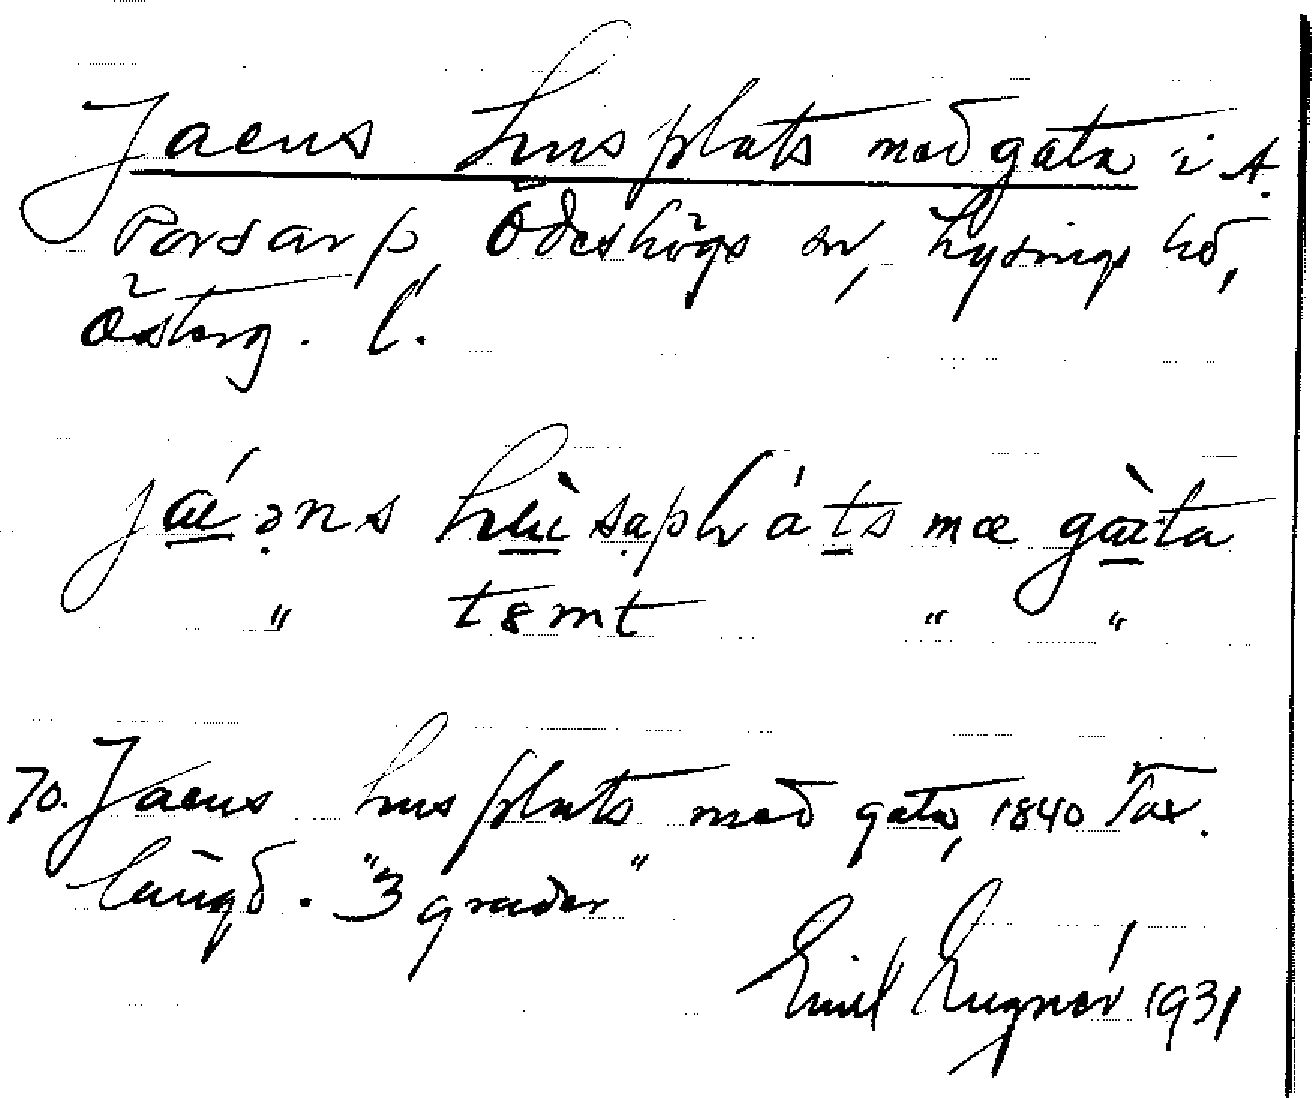 Jaens hus plats med gata i A.
Porsarp, Ödeshögs sn, Lysings hd,
Österg. l.
jáə̣ns hùsạplváts mæ gàta
" tɞmt " "
70. Jaens hus plats med gata, 1840 Tax.
längd. "3 grader"
Emil 1931